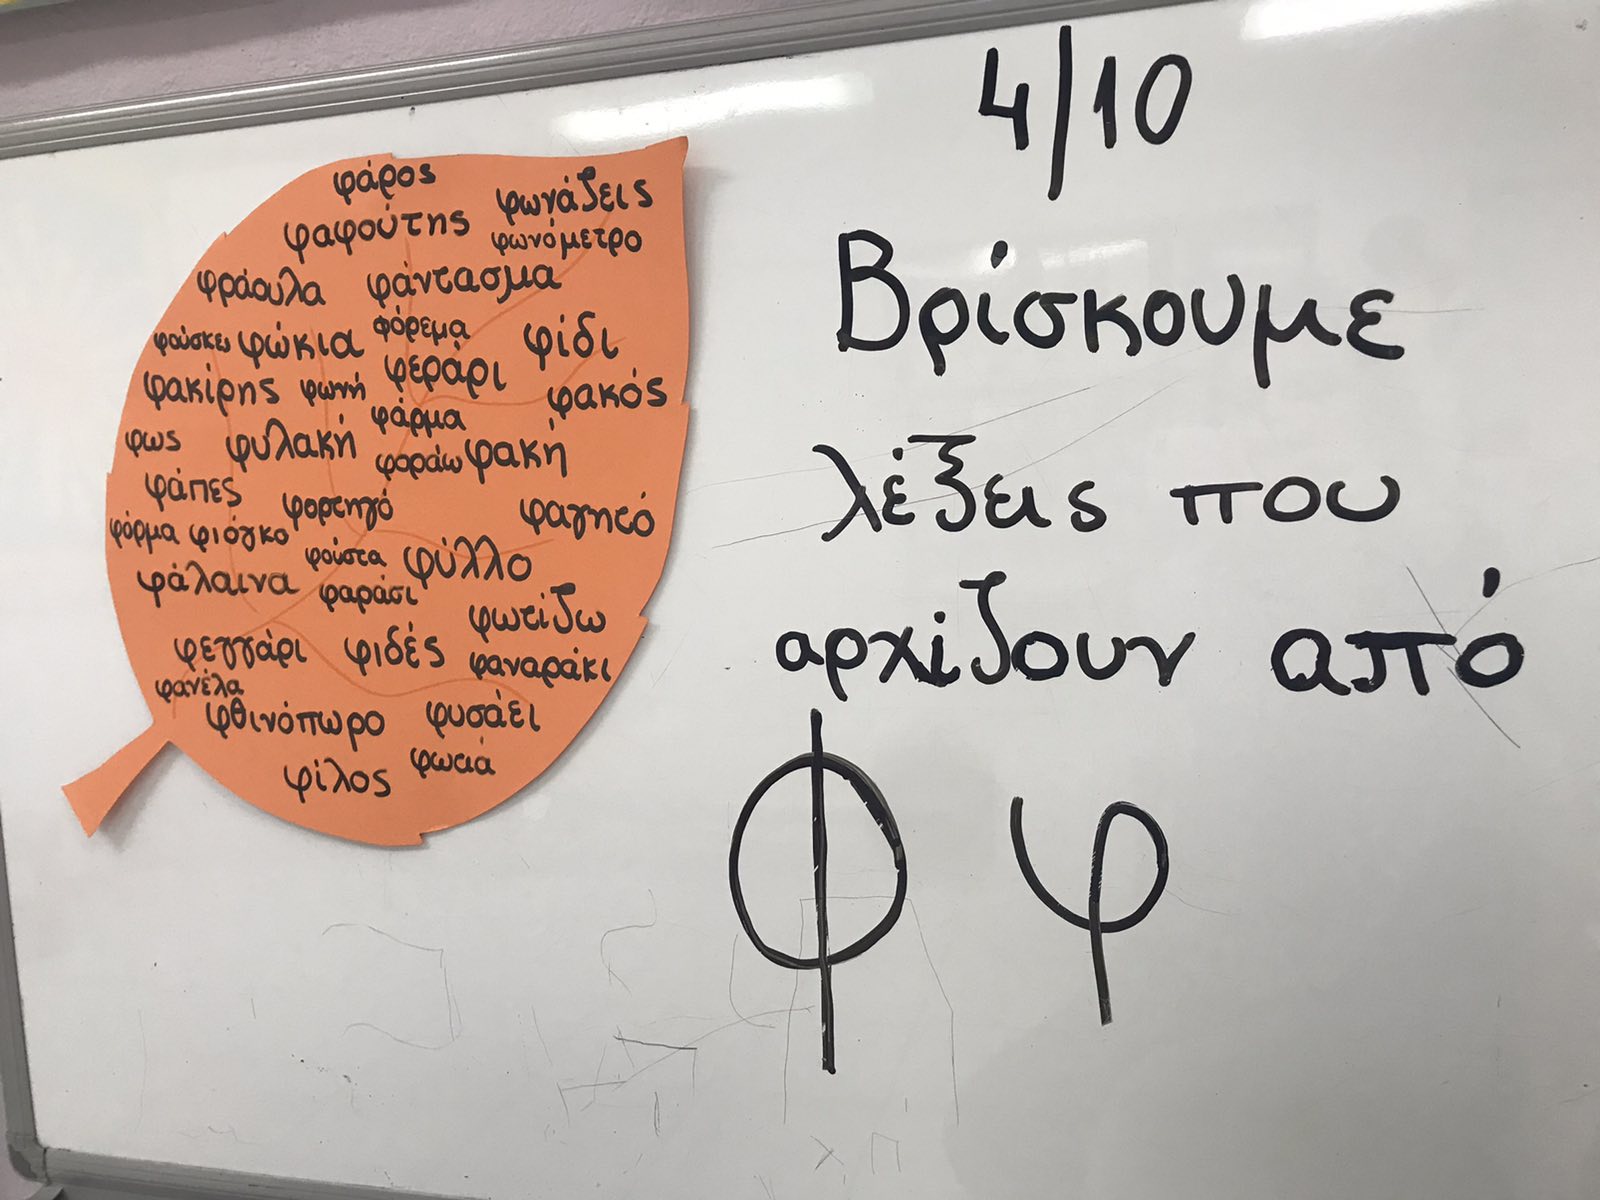 φάρος
φωνάζεις
φαφούτης
φωνόμετρο
φράουλα φάντασμα
φούσκω φώκια φόρεμα φίδι
φακίρης φωνή φεράρι φακός
φάρμα
φως φυλακή φοράω φακή
φάπες φορτηγό φαγητό
φόρμα φιόγκο
φούστα φύλλο
φάλαινα φαράσι
φωτίζω
φεγγάρι φιδές φαναράκι
φανέλα
φθινόπωρο φυσάει
φίλος φωτιά
4/10
Βρίσκουμε
λέξεις που
αρχίζουν από
Φ φ